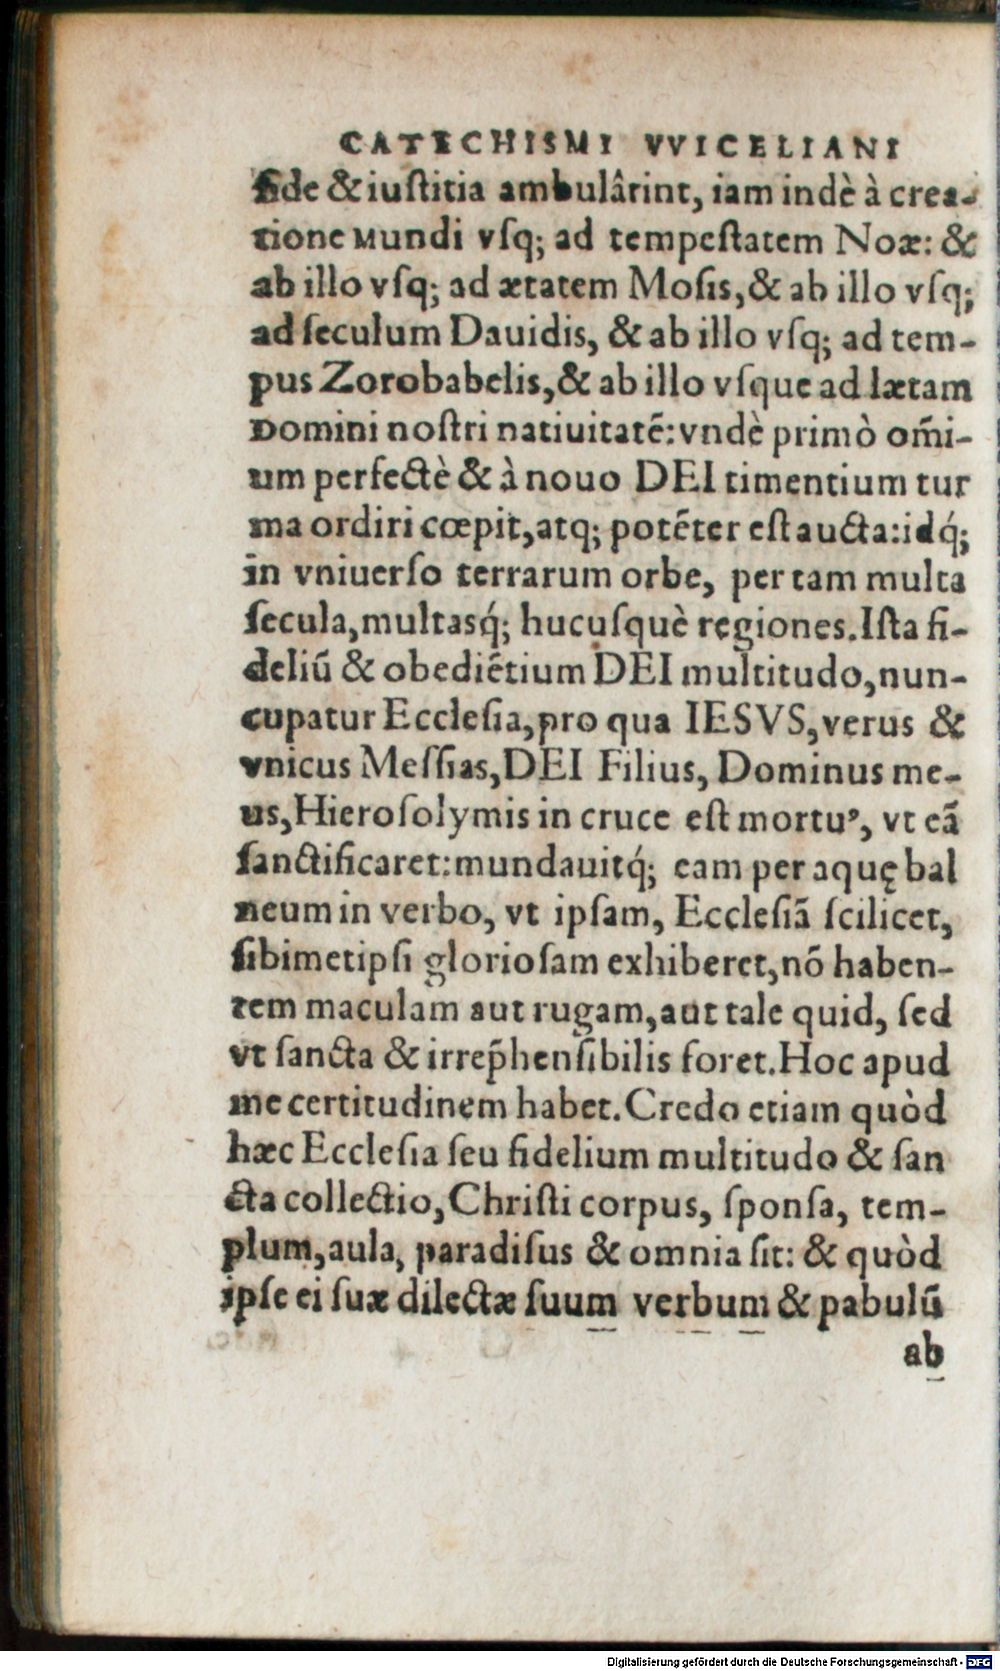 CATECHISMI VVICELIANI
fide & iuſtitia ambulârint, iam indè à crea-
tione Mundi vſq; ad tempeſtatem Noæ: &
ab illo vſq; ad ætatem Moſis, & ab illo vſq;
ad ſeculum Dauidis, & ab illo vſq; ad tem-
pus Zorobabelis, & ab illo vſque ad lætam
Domini noſtri natiuitatē: vndè primò om̄i-
um perfectè & à nouo DEI timentium tur
ma ordiri cœpit, atq; potēter eſt aucta: idq́;
in vniuerſo terrarum orbe, per tam multa
ſecula, multasq́; hucuſquè regiones. Iſta fi-
deliū & obediētium DEI multitudo, nun-
cupatur Eccleſia, pro qua IESVS, verus &
vnicus Meſſias, DEI Filius, Dominus me-
us, Hieroſolymis in cruce eſt mortuꝰ, vt eā
ſanctificaret: mundauitq́; eam per aquę bal
neum in verbo, vt ipſam, Eccleſiā ſcilicet,
ſibimetipſi glorioſam exhiberet, nō haben-
tem maculam aut rugam, aut tale quid, ſed
vt ſancta & irrep̄henſibilis foret. Hoc apud
me certitudinem habet. Credo etiam quòd
hæc Eccleſia ſeu fidelium multitudo & ſan
cta collectio, Chriſti corpus, ſponſa, tem-
plum, aula, paradiſus & omnia ſit: & quòd
ipſe ei ſuæ dilectæ ſuum verbum & pabulū
ab
Digitalisierung gefördert durch die Deutsche Forschungsgemeinschaft - DFG